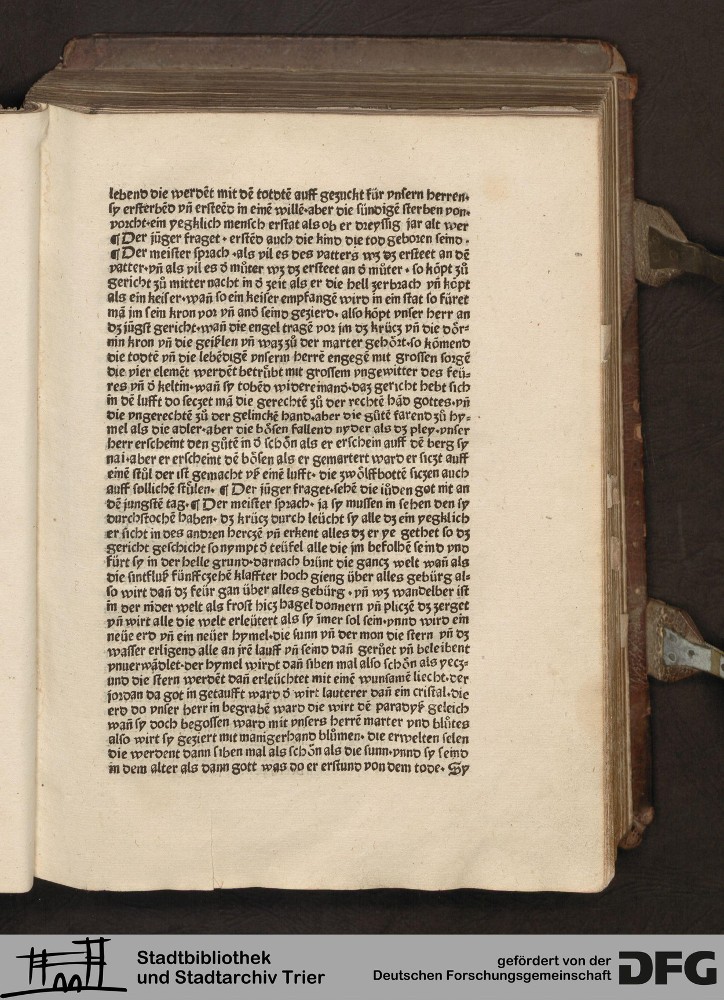 lebend die werdēt mit dē todtē auff gezuckt für vnsern herren·
sy ersterbēd vn̄ ersteēd in einē willē·aber die sündigē sterben von·
vorcht·ein yegklich mensch erstat als ob er dreyssig jar alt wer
¶ Der jūger fraget · erstēd auch die kind die tod geboren seind ·
¶ Der meister sprach ·als vil es des vatters wz dz ersteet an dē
vatter·vn̄ als vil es d̄ mūter wz dz ersteet an d̄ mūter · so kōpt zů
gericht zů mitter nacht in d̄ zeit als er die hell zerbrach vn̄ kōpt
als ein keiser·wan̄ so ein keiser empfangē wird in ein stat so füret
mā jm sein kron vor vn̄ and̄ seind gezierd· also kōpt vnser herr an
dz jūgst gericht·wan̄ die engel tragē vor jm dz krücz vn̄ die dör⸗
nin kron vn̄ die geißlen vn̄ waz zů der marter gehört·so kōmend
die todtē vn̄ die lebēdigē vnserm herrē engegē mit grossen sorgē
die vier elemēt werdēt betrůbt mit grossem vngewitter des feü⸗
res vn̄ d̄ keltin·wan̄ sy tobēd widereinand̄·daz gericht hebt sich
in dē lufft do seczet mā die gerechtē zů der rechtē hād gottes·vn̄
die vngerechtē zů der gelinckē hand·aber die gůtē farend zů hy⸗
mel als die adler·aber die bösen fallend nyder als dz pley·vnser
herr erscheint den gůtē in d̄ schön als er erschein auff dē berg sy
nai·aber er erscheint dē bösen als er gemartert ward er siczt auff
einē stůl der ist gemacht vß einē lufft· die zwölffbottē siczen auch
auff sollichē stůlen· ¶ Der jūger fraget·sehē die iūden got nit an
dē jungstē tag·¶ Der meister sprach· ja sy mussen in sehen den sy
durchstochē haben· dz krücz durch leücht sy alle dz ein yegklich
er sicht in des andren herczē vn̄ erkent alles dz er ye gethet so dz
gericht geschicht so nympt d̄ teüfel alle die jm befolhē seind vnd
fürt sy in der helle grund·darnach brünt die gancz welt wan̄ als
die sintfluß fünffczehē klaffter hoch gieng über alles gebürg al⸗
so wirt dan̄ dz feür gan über alles gebürg · vn̄ wz wandelber ist
in der nider welt als frost hicz hagel donnern vn̄ pliczē dz zerget
vn̄ wirt alle die welt erleütert als sy īmer sol sein·vnnd wird ein
neüe erd vn̄ ein neüer hymel·die sunn vn̄ der mon die stern vn̄ dz
wasser erligend alle an jrē lauff vn̄ seind dan̄ gerüet vn̄ beleibent
vnuerwādlet·der hymel wirdt dan̄ siben mal also schön als yecz⸗
und die stern werdēt dan̄ erleüchtet mit einē wunsamē liecht·der
jordan da got in getaufft ward d̄ wirt lauterer dan̄ ein cristal·die
erd do vnser herr in begrabē ward die wirt dē paradyß geleich
wan̄ sy doch begossen ward mit vnsers herrē marter vnd blůtes
also wirt sy geziert mit manigerhand blůmen· die erwelten selen
die werdent dann siben mal als schön als die sunn·vnnd sy seind
in dem alter als dann gott was do er erstund von dem tode· Sy
Stadtbibliothek
und Stadtarchiv Trier
gefördert von der
Deutschen Forschungsgemeinschaft
DFG